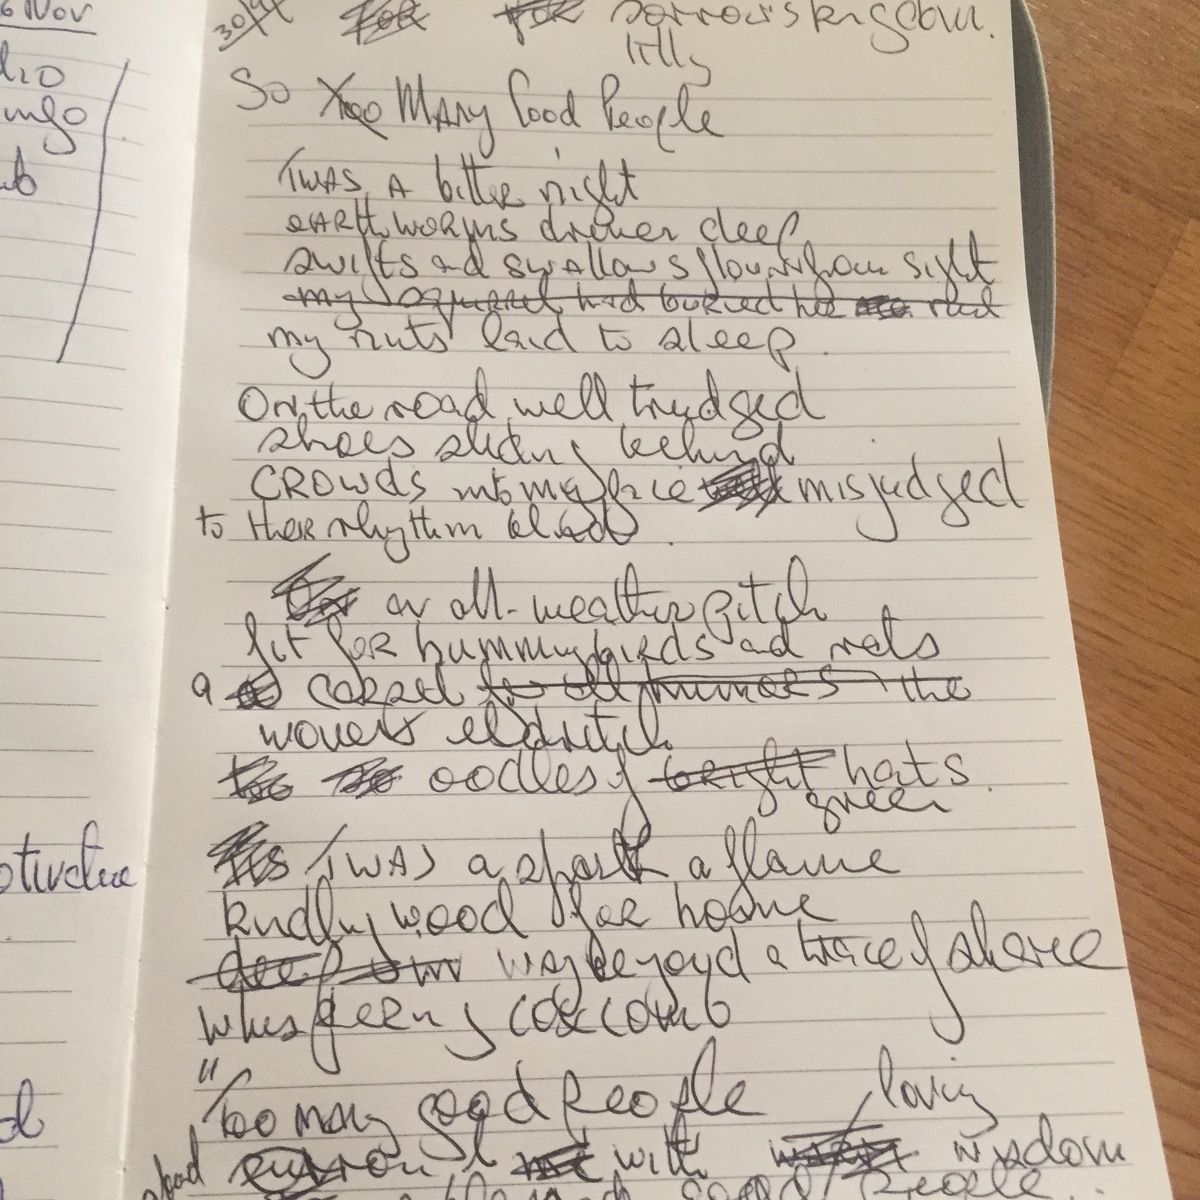 6 Nov
30/4
sorrow's kingdom.
So Too Many Good People
'TWAS A bitter night
earthworms driven deep
swifts and swallows flown from sight
my squirrel had
my nuts laid to sleep.
On the road well trudged
shoes sliding behind
CROWDS into my face misjudged
to their rhythm blind.
on all-weather pitch
fit for hummingbirds and rats
a carpet for all the
woven eldritch
oodles of bright hats.
green
'TWAS a spark a flame
kindling wood for home
deep way beyond a trace of shame
whispering coxcomb
"Too many good people
loving
with wisdom
good people